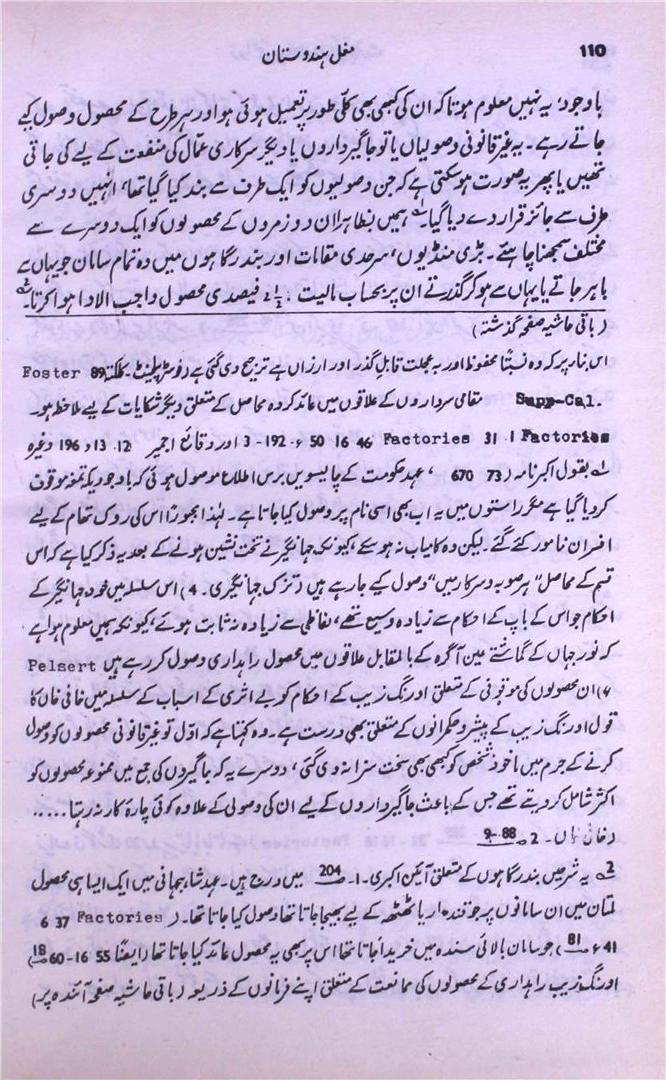 110
مغل ہندوستان
باوجود، یہ نہیں معلوم ہوتا کہ ان کی کبھی بھی کلّی طور پر تعمیل ہوئی ہو اور ہر طرح کے محصول وصول کیے
جاتے رہے۔ یہ غیر قانونی وصولیاں یا تو جاگیرداروں یا دیگر سرکاری عمّال کی منفعت کے لیے کی جاتی
تھیں یا پھر یہ صورت ہو سکتی ہے کہ جن وصولیوں کو ایک طرف سے بند کیا گیا تھا، انہیں دوسری
طرف سے جائز قرار دے دیا گیا۔ ہمیں بظاہر ان دو زمروں کے محصولوں کو ایک دوسرے سے
مختلف سمجھنا چاہئے۔ بڑی منڈیوں، سرحدی مقامات اور بندرگاہوں میں وہ تمام سامان جو یہاں سے
باہر جاتے یا یہاں سے ہو کر گذرتے ان پر بحساب مالیت 2½ فیصدی محصول واجب الادا ہوا کرتا
(باقی حاشیہ صفحہ گذشتہ)
اس بنار پر کہ وہ نسبتًا محفوظ اور بہ عجلت قابلِ گذر اور ارزاں ہے ترجیح دی گئی ہے (فوسٹر سپلیمنٹ۔ کلکتہ 89 Foster
Supp-Cal. مقامی سرداروں کے علاقوں میں عائد کردہ محاصل کے متعلق دیگر شکایات کے لیے ملاحظہ ہو۔
Factories 1. 31 Factories 46 16 50 ء، 192-3 اور وقائع اجمیر 12، 13 و 196 وغیرہ
1 بقول اکبرنامہ (73 670)، عہد حکومت کے چالیسویں برس اطلاع موصول ہوئی کہ باوجودیکہ تمغہ موقوف
کر دیا گیا ہے مگر راستوں میں یہ اب بھی اسی نام پر وصول کیا جاتا ہے۔ لہٰذا مجبورًا اس کی روک تھام کے لیے
افسران نامور کئے گئے۔ لیکن وہ کامیاب نہ ہو سکے، کیونکہ جہانگیر نے تخت نشین ہونے کے بعد یہ ذکر کیا ہے کہ اس
قسم کے محاصل "ہر صوبہ و سرکار میں" وصول کیے جا رہے ہیں (تزک جہانگیری۔ 4) اس سلسلہ میں خود جہانگیر کے
احکام جو اس کے باپ کے احکام سے زیادہ وسیع تھے، لفاظی سے زیادہ نہ ثابت ہوئے، کیونکہ ہمیں معلوم ہوا ہے
کہ نور جہاں کے گماشتے عین آگرہ کے بالمقابل علاقوں میں محصول راہداری وصول کر رہے ہیں Pelsert
4) ان محصولوں کی موقوفی کے متعلق اورنگ زیب کے احکام کو بے اثری کے اسباب کے سلسلہ میں خافی خاں کا
قول اورنگ زیب کے پیشرو حکمرانوں کے متعلق بھی درست ہے۔ وہ کہتا ہے کہ اوّل تو غیر قانونی محصولوں کو وصول
کرنے کے جرم میں ماخوذ شخص کو کبھی بھی سخت سزا نہ دی گئی، دوسرے یہ کہ جاگیروں کی جمع میں ممنوعہ محصولوں کو
اکثر شامل کر دیتے تھے جس کے باعث جاگیرداروں کے لیے ان کی وصولی کے علاوہ کوئی چارۂ کار نہ رہتا .....
(خافی خاں۔ 2 88-9
2 یہ شرحیں بندرگاہوں کے متعلق آئین اکبری۔ 1۔ 204 میں درج ہیں۔ عہد شاہجہانی میں ایک ایسا ہی محصول
ملتان میں ان سامانوں پر جو قندھار یا ٹھٹھہ کے لیے بھیجا جاتا تھا وصول کیا جاتا تھا۔ (Factories 37 6
41 ء 81) جو سامان بالائی سندھ میں خریدا جاتا تھا اس پر بھی یہ محصول عائد کیا جاتا تھا (ایضًا 55 16-60 18)
اورنگ زیب راہداری کے محصولوں کی ممانعت کے متعلق اپنے فرمانوں کے ذریعہ (باقی حاشیہ صفحہ آئندہ پر)